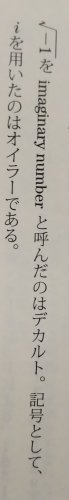 √−1 を imaginary number と呼んだのはデカルト。記号として、
i を用いたのはオイラーである。